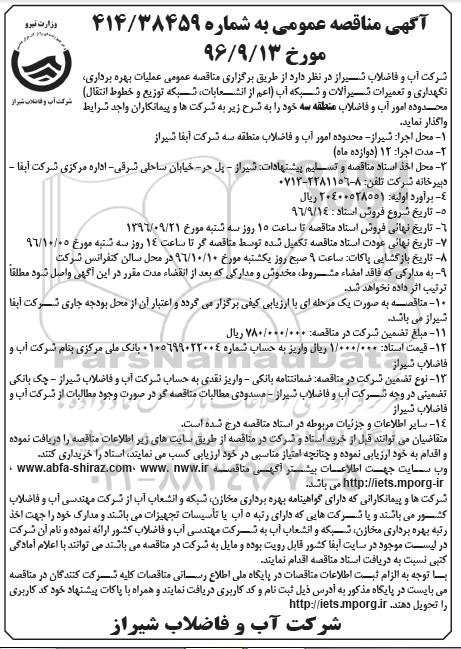 وزارت نیرو
شرکت آب و فاضلاب شیراز
آگهی مناقصه عمومی به شماره ۴۱۴/۳۸۴۵۹
مورخ ۹۶/۹/۱۳
شرکت آب و فاضلاب شیراز در نظر دارد از طریق برگزاری مناقصه عمومی عملیات بهره برداری،
نگهداری و تعمیرات شیرآلات و شبکه آب (اعم از انشعابات، شبکه توزیع و خطوط انتقال)
محدوده امور آب و فاضلاب منطقه سه خود را به شرح زیر به شرکت ها و پیمانکاران واجد شرایط
واگذار نماید.
۱- محل اجرا: شیراز- محدوده امور آب و فاضلاب منطقه سه شرکت آبفا شیراز
۲- مدت اجرا: ۱۲ (دوازده ماه)
۳- محل اخذ اسناد مناقصه و تسلیم پیشنهادات: شیراز - پل حر- خیابان ساحلی شرقی- اداره مرکزی شرکت آبفا -
دبیرخانه شرکت تلفن: ۸-۲۲۸۱۱۵۶-۰۷۱۳
۴- برآورد اولیه: ۲۰۴۰۰۵۲۸۵۵۱ ریال
۵- تاریخ شروع فروش اسناد : ۹۶/۹/۱۴
۶- تاریخ نهائی فروش اسناد مناقصه تا ساعت ۱۵ روز سه شنبه مورخ ۱۳۹۶/۰۹/۲۱
۷- تاریخ نهائی عودت اسناد مناقصه تکمیل شده توسط مناقصه گر تا ساعت ۱۴ روز سه شنبه مورخ ۹۶/۱۰/۰۵
۸- تاریخ بازگشایی پاکات: ساعت ۹ صبح روز یکشنبه مورخ ۹۶/۱۰/۱۰ در محل سالن کنفرانس شرکت
۹- به مدارکی که فاقد امضاء مشروط، مخدوش و مدارکی که بعد از انقضاء مدت مقرر در این آگهی واصل شود مطلقاً
ترتیب اثر داده نخواهد شد.
۱۰- مناقصه به صورت یک مرحله ای با ارزیابی کیفی برگزار می گردد و اعتبار آن از محل بودجه جاری شرکت آبفا
شیراز می باشد.
۱۱- مبلغ تضمین شرکت در مناقصه: ۷۸۰/۰۰۰/۰۰۰ ریال
۱۲- قیمت اسناد: ۱/۰۰۰/۰۰۰ ریال واریز به حساب شماره ۰۱۰۵۶۹۹۰۲۲۰۰۴ بانک ملی مرکزی بنام شرکت آب و
فاضلاب شیراز
۱۳- نوع تضمین شرکت در مناقصه: ضمانتنامه بانکی - واریز نقدی به حساب شرکت آب و فاضلاب شیراز - چک بانکی
تضمینی در وجه شرکت آب و فاضلاب شیراز - مسدودی مطالبات مناقصه گر در صورت وجود مطالبات از شرکت آب و
فاضلاب شیراز
۱۴- سایر اطلاعات و جزئیات مربوطه در اسناد مناقصه درج شده است.
متقاضیان می توانند قبل از خرید اسناد و شرکت در مناقصه از طریق سایت های زیر اطلاعات مناقصه را دریافت نموده
و اقدام به خود ارزیابی نموده و چنانچه امتیاز مناسبی در خود ارزیابی کسب می نمایند، اسناد را خریداری کنند.
وب سایت جهت اطلاعات بیشتر آگهی مناقصه www.abfa-shiraz.com، www. nww.ir ،
http://iets.mporg-ir می باشد.
شرکت ها و پیمانکارانی که دارای گواهینامه بهره برداری مخازن، شبکه و انشعاب آب از شرکت مهندسی آب و فاضلاب
کشور می باشند و یا شرکت هایی که دارای رتبه ۵ آب یا تأسیسات تجهیزات می باشند و مدارک خود را جهت اخذ
رتبه بهره برداری مخازن، شبکه و انشعاب آب به شرکت مهندسی آب و فاضلاب کشور ارائه نموده و نام آن شرکت
در لیست موجود در سایت آبفا کشور قابل رویت بوده و مایل به شرکت در مناقصه می باشند می توانند با اعلام آمادگی
کتبی نسبت به دریافت اسناد مناقصه اقدام نمایند.
با توجه به الزام ثبت اطلاعات مناقصات در پایگاه ملی اطلاع رسانی مناقصات کلیه شرکت کنندگان در مناقصه
می بایست در پایگاه مذکور به آدرس ذیل ثبت نام و کد کاربری دریافت نمایند و همراه با پاکات پیشنهاد خود کد کاربری
را تحویل دهند. http://iets.mporg.ir
شرکت آب و فاضلاب شیراز